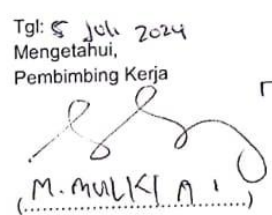 Tgl: 5 Juli 2024
Mengetahui,
Pembimbing Kerja
(M. MULKI A)